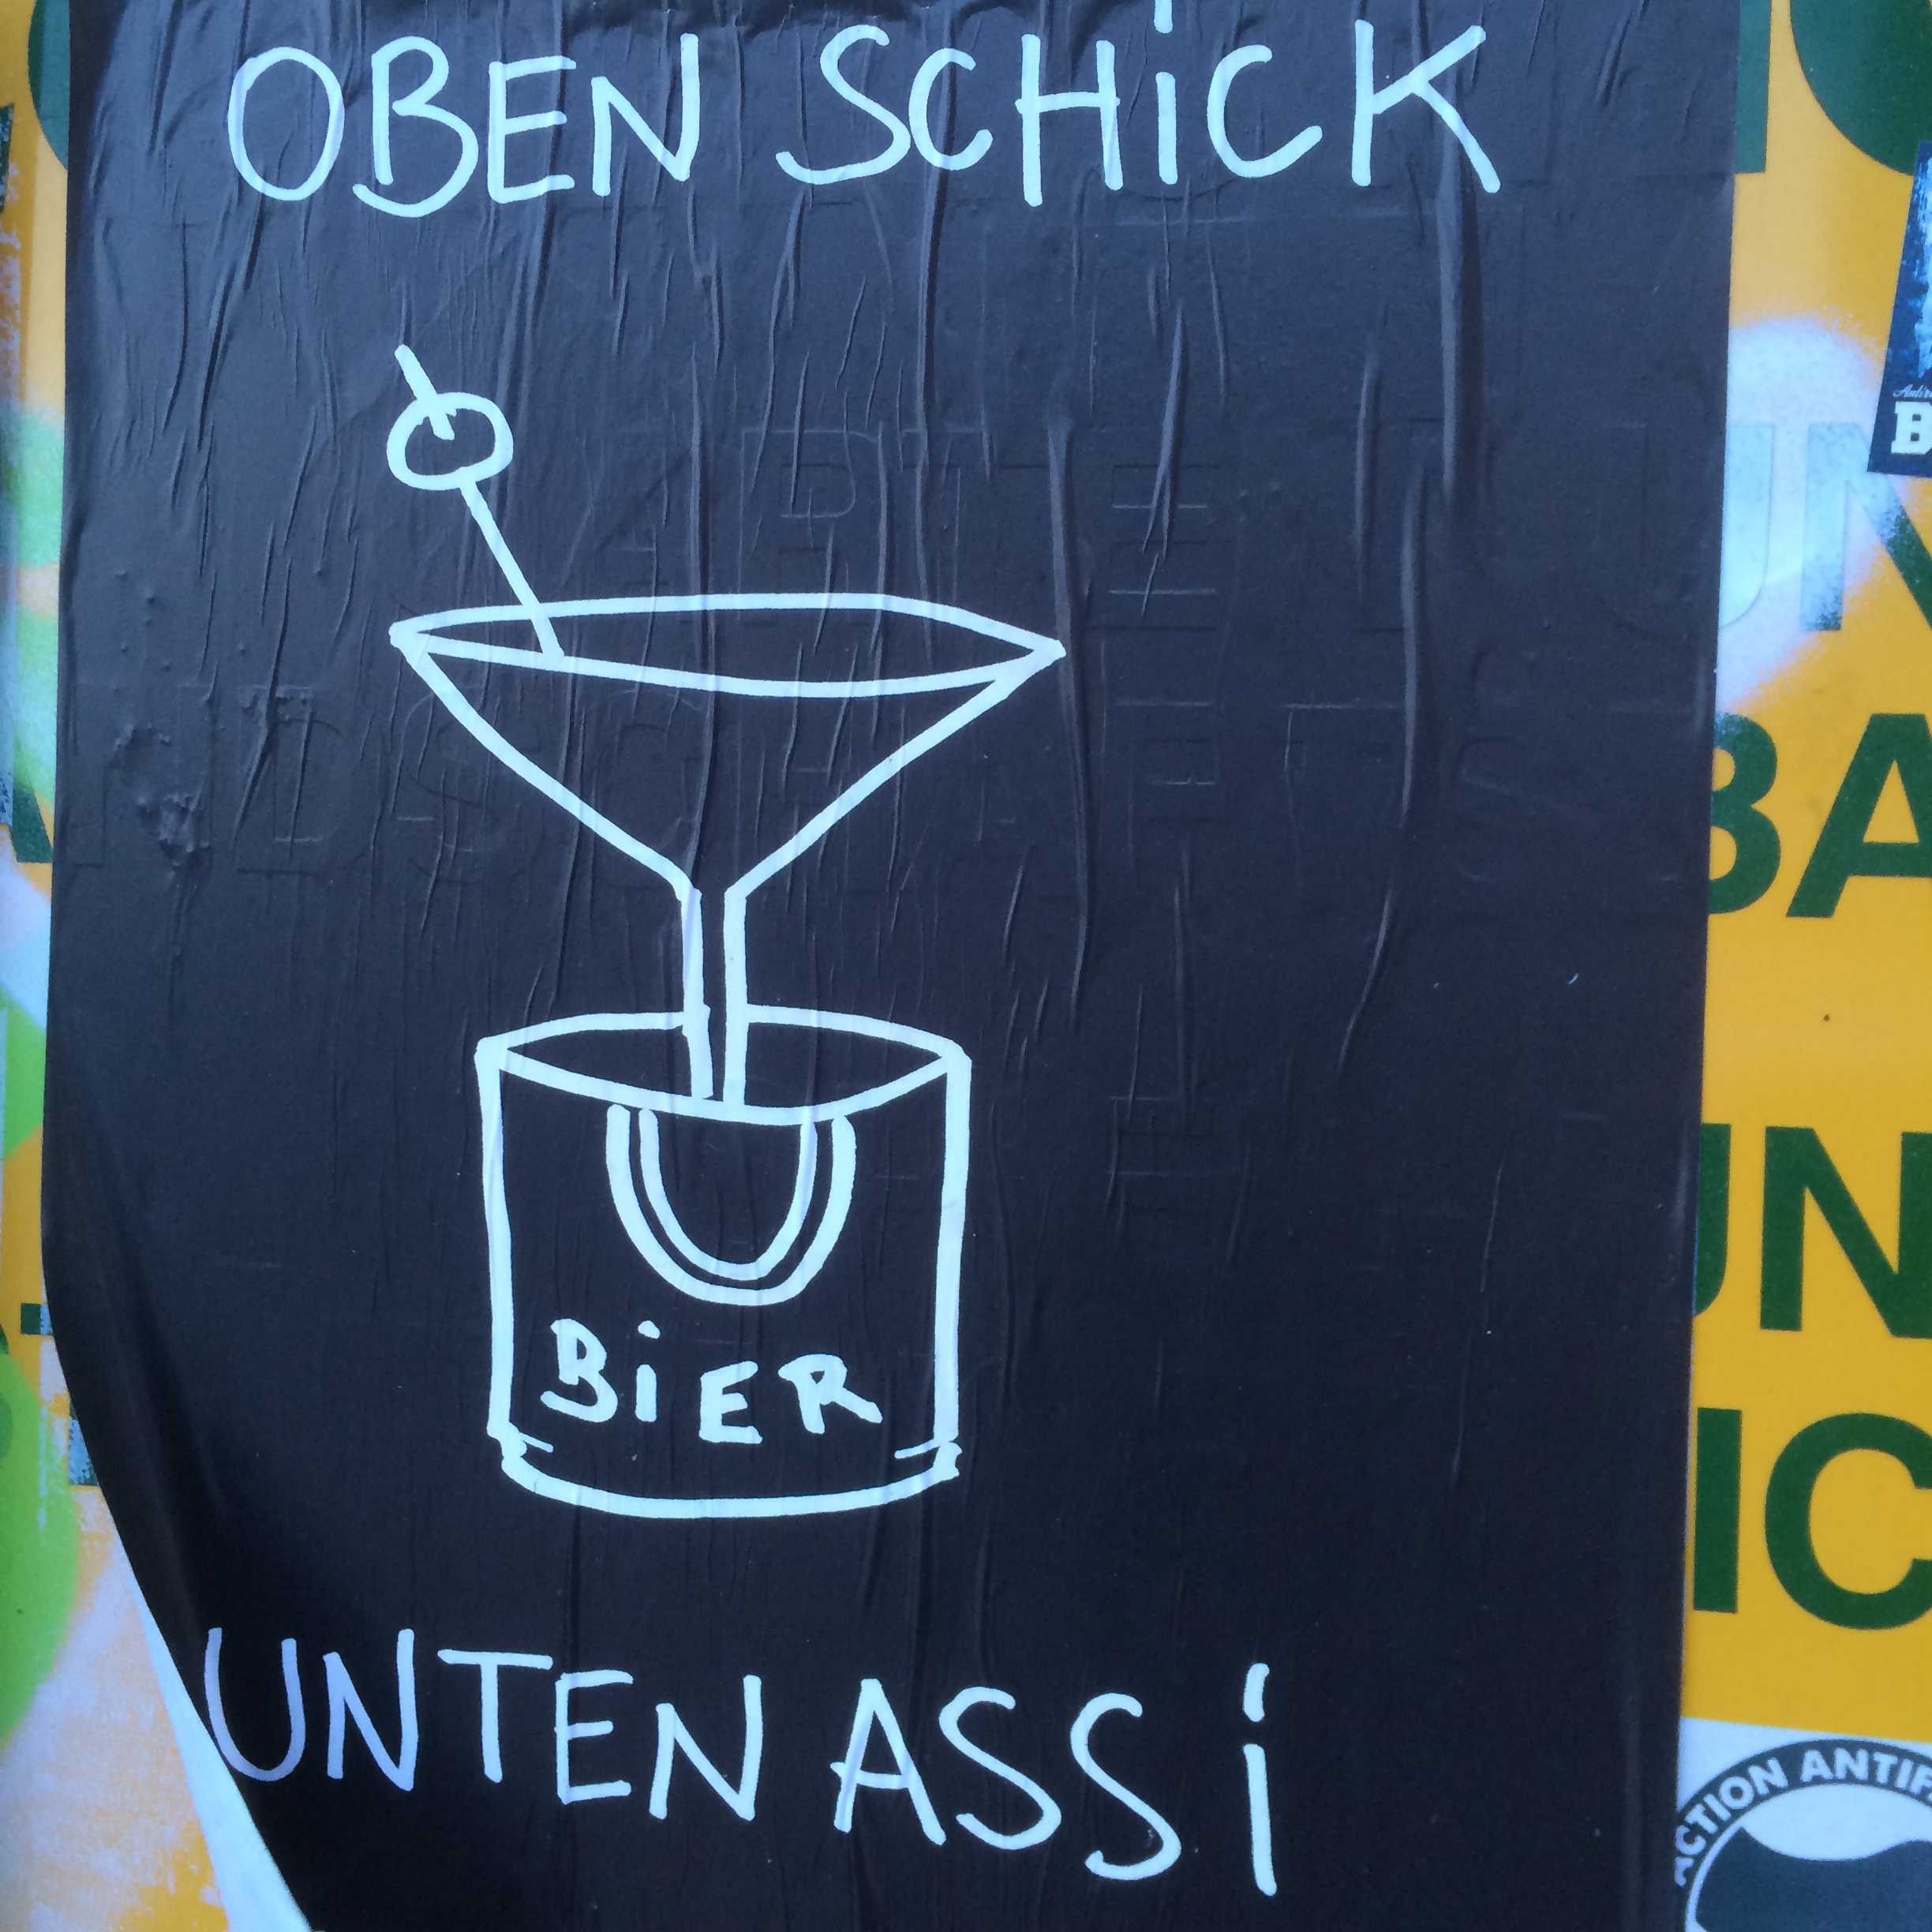 OBEN SCHiCK
BiER
UNTEN ASSi
B
UN
BA
UN
IC
ACTION ANTIF